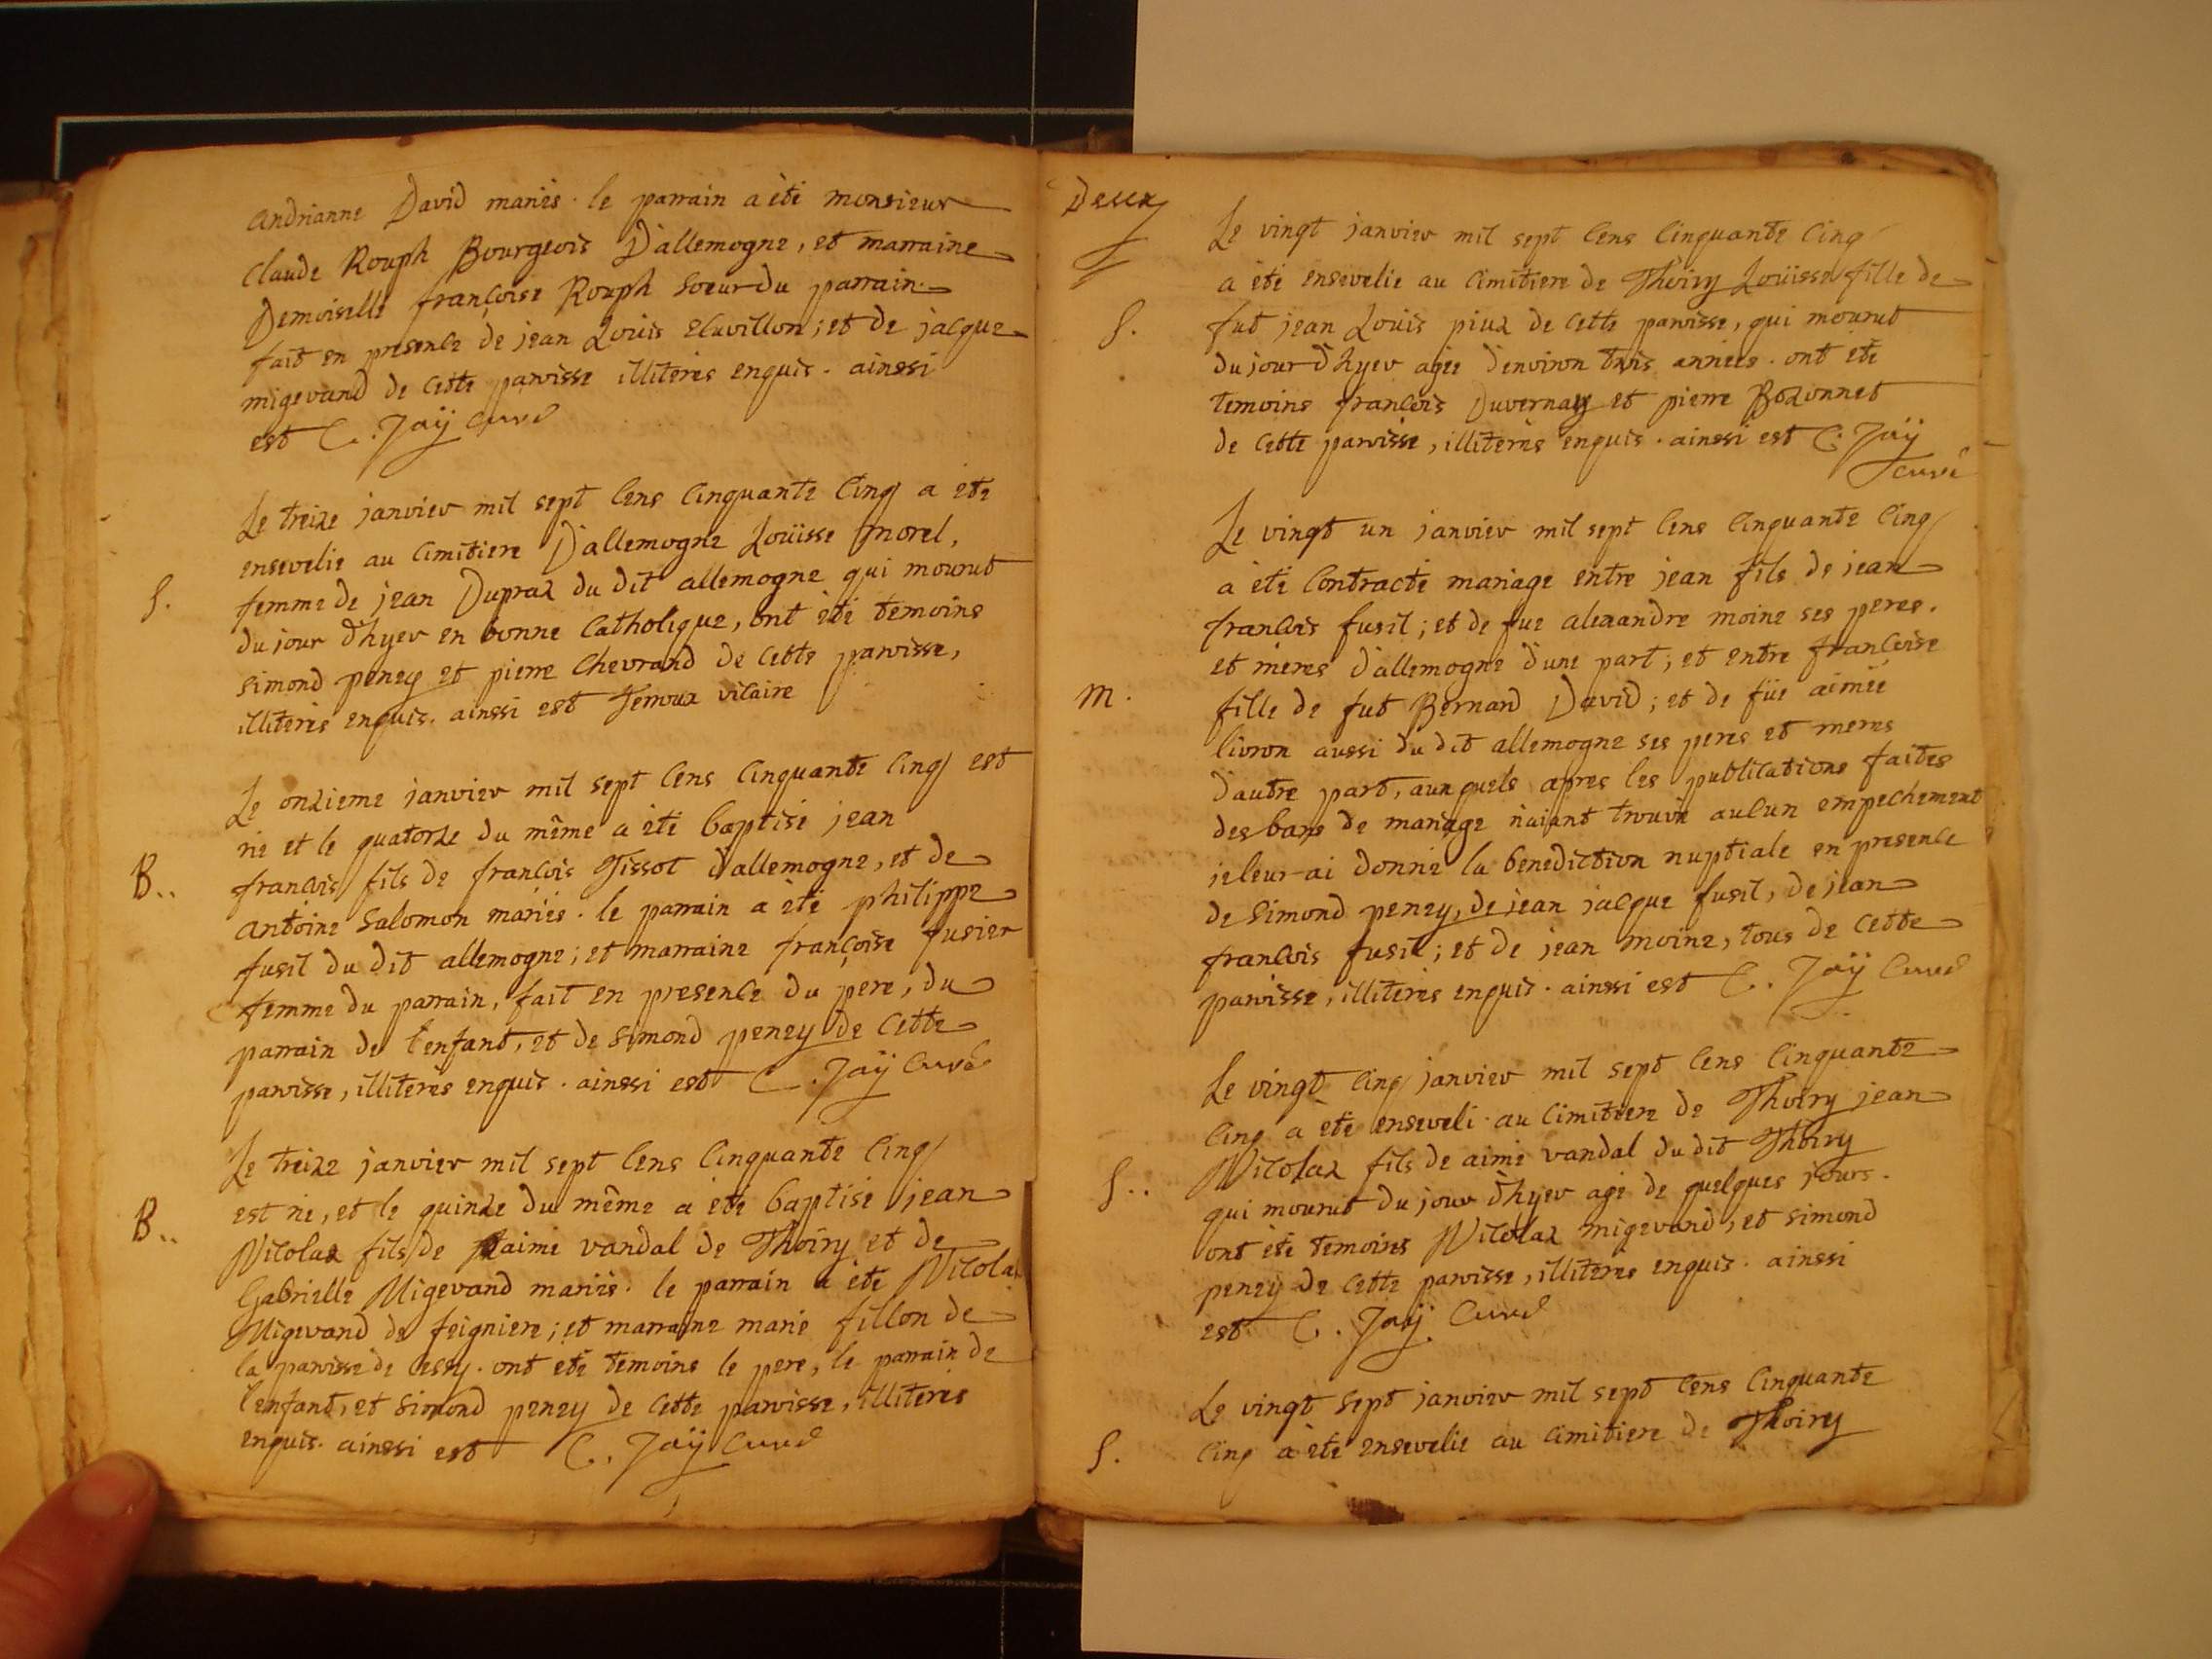 andrianne David mariés. le parrain a èté monsieur
Claude Rouph Bourgeois D'allemogne, et marraine
Demoiselle françoise Rouph soeur du parrain.
fait en presence de jean Loüis eluvillon; et de jacque
migevand de cette paroisse illiterés enquis. ainssi
est C. Jaÿ Curé
Le treize janvier mil sept cens cinquante cinq a été
ensevelie au cimitiere D'allemogne Loüisse morel,
S. femme de jean Dupraz du dit allemogne qui mourut
du jour d'hyer en bonne catholique, ont été temoins
simond peney et pierre Chevrand de cette paroisse,
illiterés enquis. ainssi est femoux vicaire
Le onzieme janvier mil sept cens cinquante cinq est
né et le quatorze du même a été baptisé jean
B.. francois fils de francois Tissot d'allemogne, et de
antoine Salomon mariés. le parrain a été philippe
fusil du dit allemogne; et marraine françoise fusier
femme du parrain, fait en presence du pere, du
parrain de l'enfant, et de simond peney de cette
paroisse, illiterés enquis. ainssi est C. Jaÿ Curé
Le treize janvier mil sept cens cinquante cinq
est né, et le quinze du même a été baptisé jean
B.. Nicolaz fils de aimé vandal de Thoiry et de
Gabrielle Migevand mariés. le parrain a èté Nicolaz
Migevand de feigniere; et marraine marie fillon de
la paroisse de cessy. ont été temoins le pere, le parrain de
l'enfant, et simond peney de cette paroisse, illiterés
enquis. ainssi est C. Jaÿ Curé
Deux
Le vingt janvier mil sept cens cinquante cinq
a été ensevelie au cimitiere de Thoiry Loüisse fille de
S. fut jean Loüis piux de cette paroisse, qui mourut
du jour d'hyer agée d'environ trois années. ont été
temoins francois Duvernay et pierre Bozonnet
de cette paroisse, illiterés enquis. ainssi est C. Jaÿ
curé
Le vingt un janvier mil sept cens cinquante cinq
a été contracté mariage entre jean fils de jean
francois fusil; et de fue alexandre moine ses peres.
et meres d'allemogne d'une part; et entre françoise
m. fille de fut Bernard David; et de füe aimée
livron aussi du dit allemogne ses peres et meres
d'autre part, auxquels apres les publications faites
des bans de mariage n'aiant trouvé aucun empechement
je leur ai donné la benediction nuptiale en presence
de Simond peney, de jean jacque fusil, de jean
francois fusil; et de jean moine, tous de cette
paroisse, illiterés enquis. ainssi est C. Jaÿ Curé
Le vingt cinq janvier mil sept cens cinquante
cinq a été enseveli au cimitiere de Thoiry jean
S.. Nicolaz fils de aimé vandal du dit Thoiry
qui mourut du jour d'hyer agé de quelques jours.
ont été temoins Nicolaz migevand, et simond
peney de cette paroisse, illiterés enquis. ainssi
est C. Jaÿ Curé
Le vingt sept janvier mil sept cens cinquante
S. cinq a été ensevelie au cimitiere de Thoiry